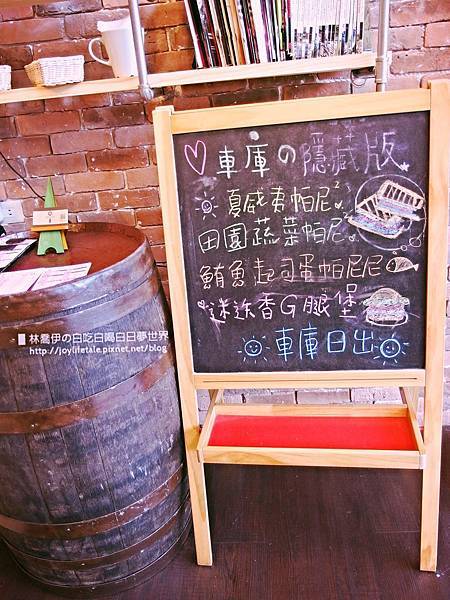 ♡車庫の隱藏版
夏威夷帕尼²
田園蔬菜帕尼²
鮪魚起司蛋帕尼尼
迷迭香G腿堡
車庫日出
林喬伊の白吃白喝白日夢世界
http://joylifetale.pixnet.net/blog